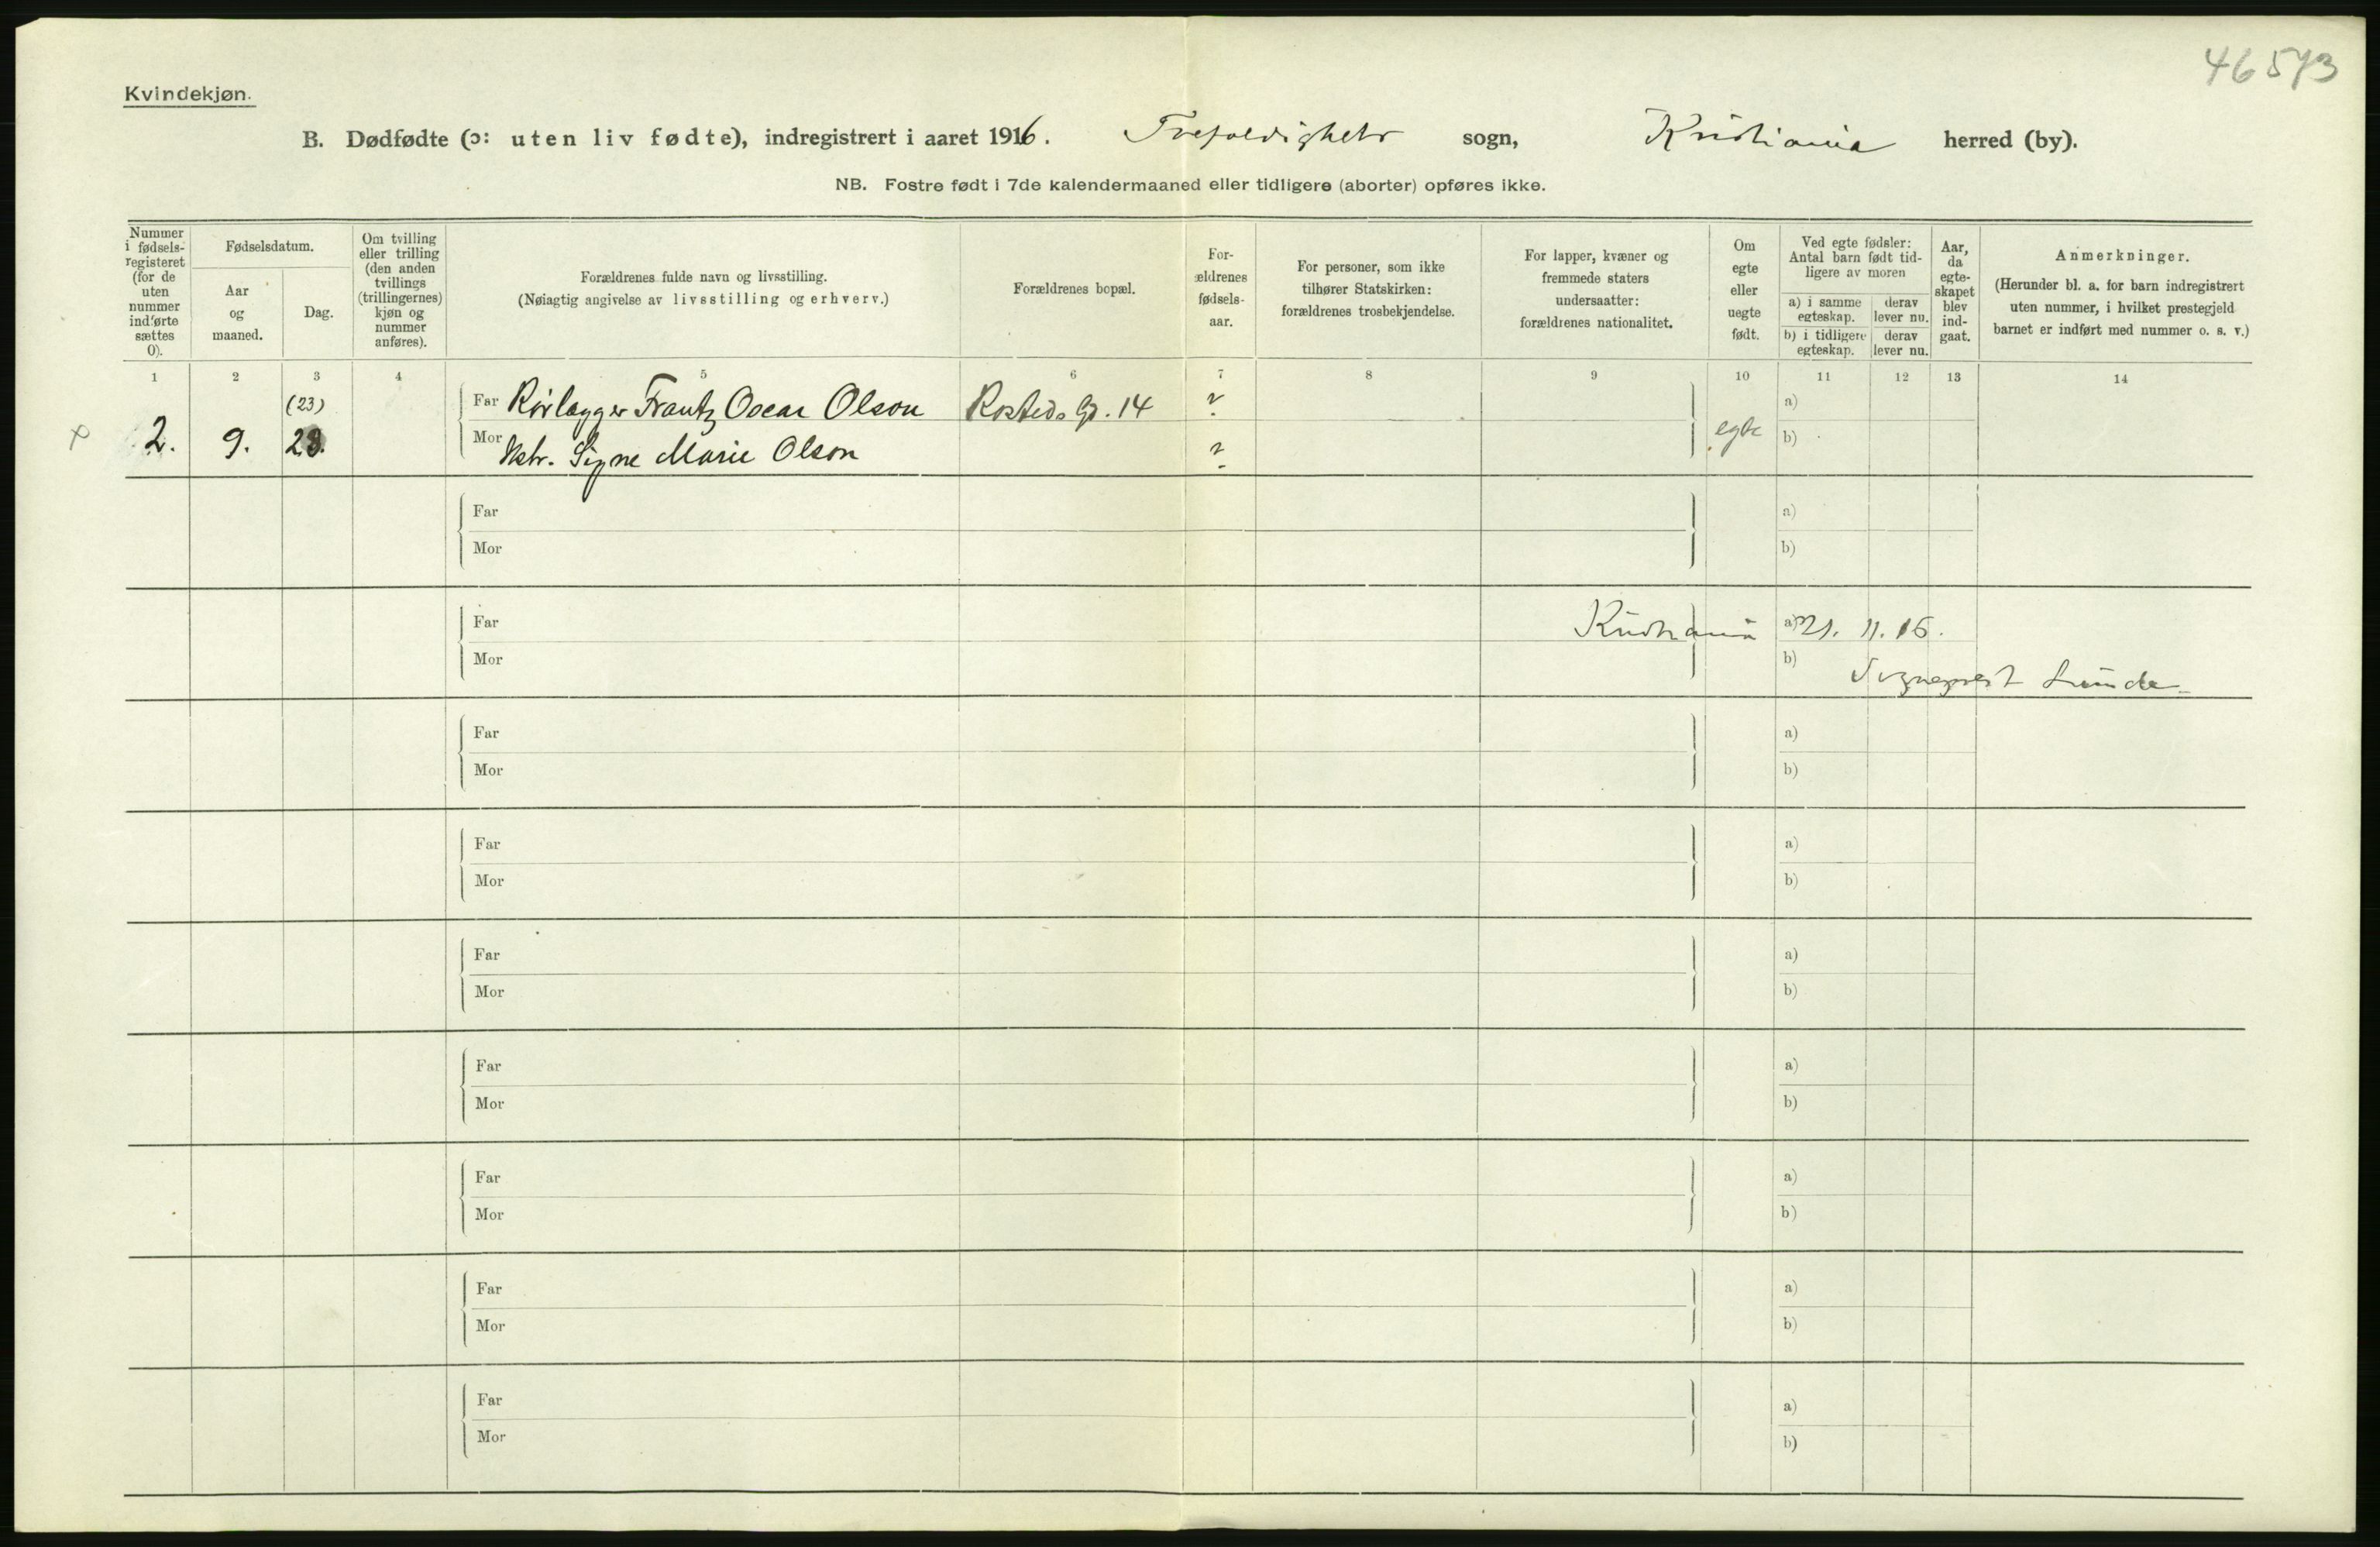 46573
Kvindekjøn.
B. Dødfødte (ɔ: uten liv fødte), indregistrert i aaret 1916. Trefoldighets sogn, Kristiania herred (by).
NB. Fostre født i 7de kalendermaaned eller tidligere (aborter) opføres ikke.
Nummer i fødsels-registeret (for de uten nummer indførte sættes 0).
Fødselsdatum.
Aar og maaned.
Dag.
Om tvilling eller trilling (den anden tvillings (trillingernes) kjøn og nummer anføres).
Forældrenes fulde navn og livsstilling.
(Nøiagtig angivelse av livsstilling og erhverv.)
Forældrenes bopæl.
For-ældrenes fødsels-aar.
For personer, som ikke tilhører Statskirken: forældrenes trosbekjendelse.
For lapper, kvæner og fremmede staters undersaatter: forældrenes nationalitet.
Om egte eller uegte født.
Ved egte fødsler: Antal barn født tid-ligere av moren
a) i samme egteskap.
derav lever nu.
b) i tidligere egteskap.
derav lever nu.
Aar, da egte-skapet blev ind-gaat.
Anmerkninger.
(Herunder bl. a. for barn indregistrert uten nummer, i hvilket prestegjeld barnet er indført med nummer o. s. v.)
1 2 3 4 5 6 7 8 9 10 11 12 13 14
(23)
Far Rørlægger Frantz Oscar Olson Rosteds Gd. 14 ? a)
2. 9. 23. egte
Mor Hstr. Signe Marie Olson ? b)
Far a)
Mor b)
Far Kristiania a) 21. 11. 16.
Mor b) Sogneprest Lunde
Far a)
Mor b)
Far a)
Mor b)
Far a)
Mor b)
Far a)
Mor b)
Far a)
Mor b)
Far a)
Mor b)
Far a)
Mor b)